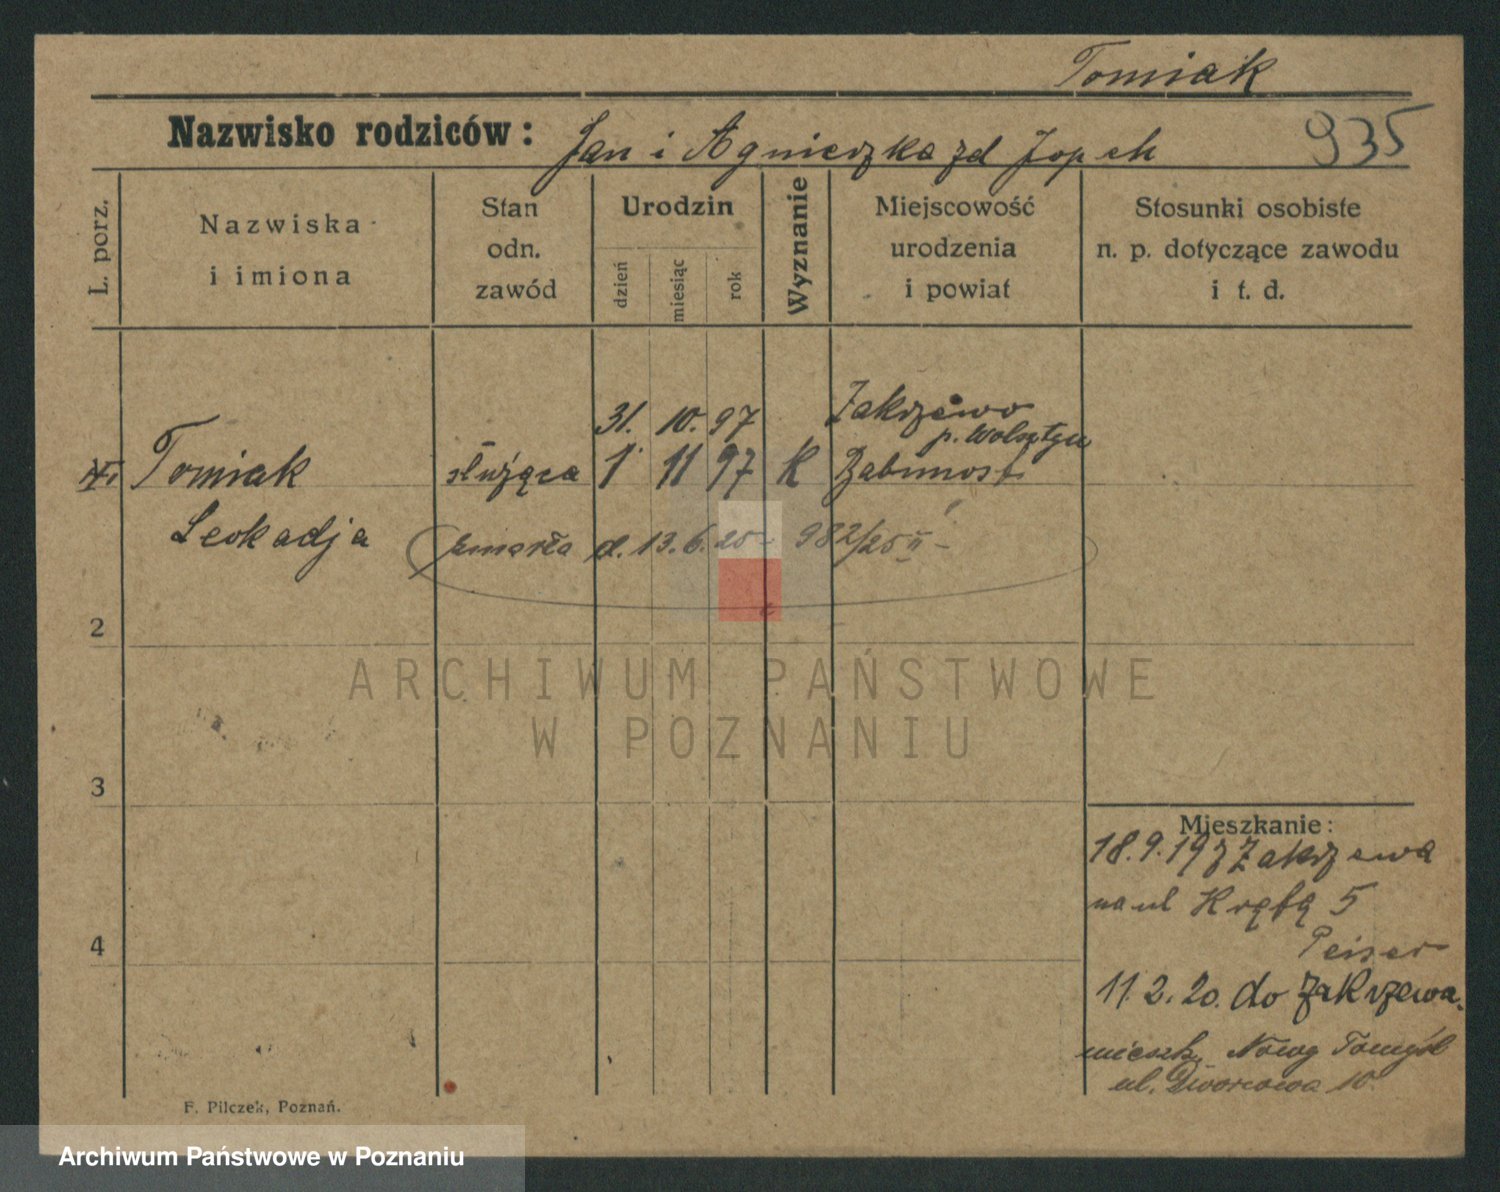 Tomiak
Nazwisko rodziców: Jan i Agnieszka zd Jopek
935
L. porz.
Nazwiska i imiona
Stan odn. zawód
Urodzin
dzień
miesiąc
rok
Wyznanie
Miejscowość urodzenia i powiat
Stosunki osobiste n. p. dotyczące zawodu i t. d.
31. 10. 97 Zakrzewo
p. Wolsztyn
1. Tomiak służąca 1 11 97 K Babimost
Leokadja
zmarła d. 13.6. 982/25 II
2
3
4
Mieszkanie:
18.9.19 z Zakrzewa
na ul 5
Peiser
11.2.20. do Zakrzewa.
mieszk. Nowy Tomyśl
ul. Dworcowa 10.
F. Pilczek, Poznań.
ARCHIWUM PAŃSTWOWE
W POZNANIU
Archiwum Państwowe w Poznaniu